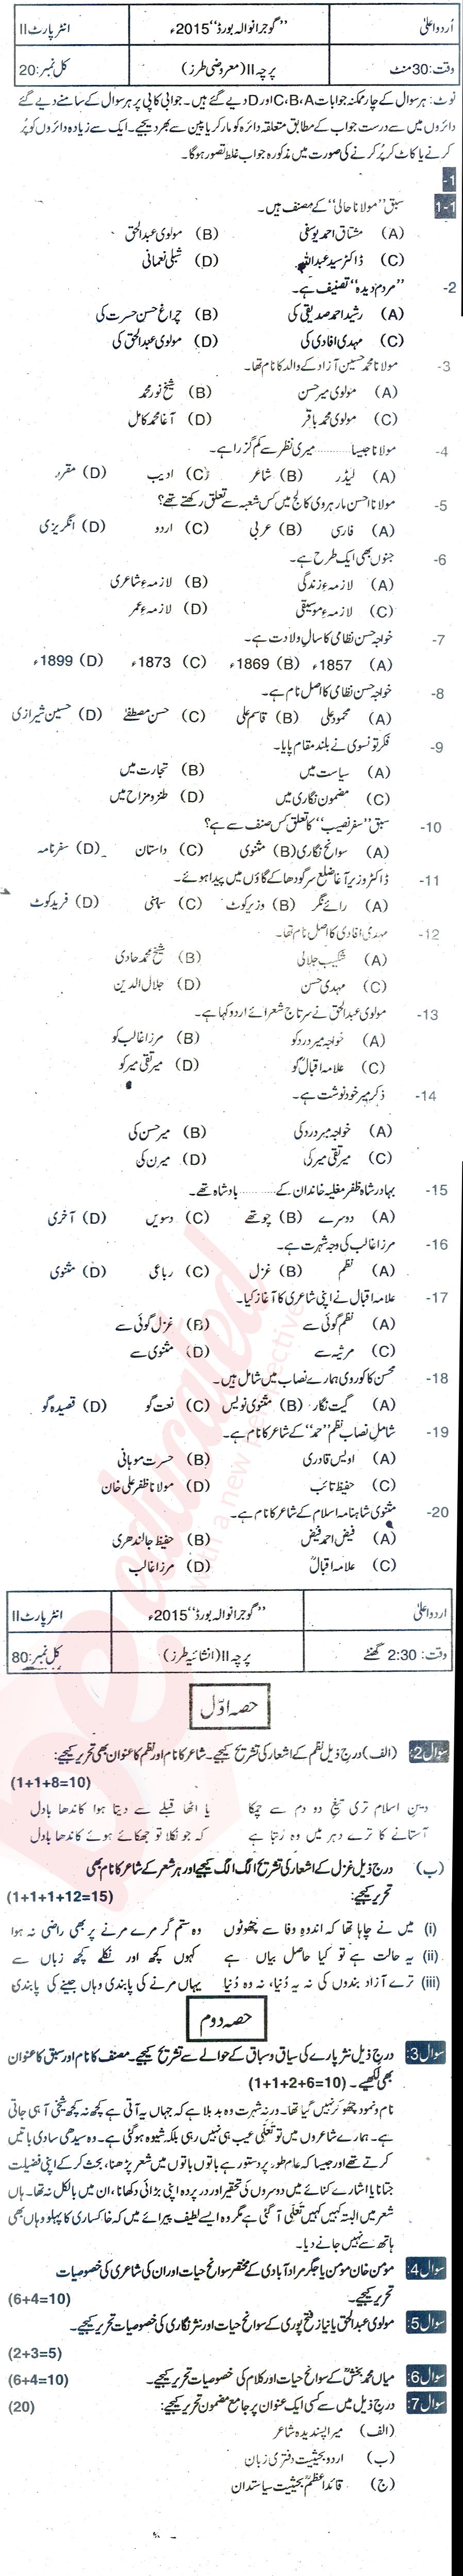 اُردو اعلیٰ "گوجرانوالہ بورڈ" 2015ء انٹر پارٹ II
وقت: 30 منٹ پرچہ II (معروضی طرز) کل نمبر: 20
نوٹ: ہر سوال کے چار ممکنہ جوابات A، B، C اور D دیے گئے ہیں۔ جوابی کاپی پر ہر سوال کے سامنے دیے گئے
دائروں میں سے درست جواب کے مطابق متعلقہ دائرہ کو مارکر یا پین سے بھر دیجیے۔ ایک سے زیادہ دائروں کو پُر
کرنے یا کاٹ کر پُر کرنے کی صورت میں مذکورہ جواب غلط تصور ہوگا۔
-1
1-1 سبق "مولانا حالی" کے مصنف ہیں۔
(A) مشتاق احمد یوسفی (B) مولوی عبدالحق
(C) ڈاکٹر سید عبداللہ (D) شبلی نعمانی
-2 "مردم دیدہ" تصنیف ہے۔
(A) رشید احمد صدیقی کی (B) چراغ حسن حسرت کی
(C) مہدی افادی کی (D) مولوی عبدالحق کی
-3 مولانا محمد حسین آزاد کے والد کا نام تھا۔
(A) مولوی میر حسن (B) شیخ نور محمد
(C) مولوی محمد باقر (D) آغا محمد کامل
-4 مولانا جیسا .......... میری نظر سے کم گزرا ہے۔
(A) لیڈر (B) شاعر (C) ادیب (D) مقرر
-5 مولانا احسن مارہروی کالج میں کس شعبہ سے تعلق رکھتے تھے؟
(A) فارسی (B) عربی (C) اردو (D) انگریزی
-6 جنوں بھی ایک طرح ہے۔
(A) لازمہءِ زندگی (B) لازمہءِ شاعری
(C) لازمہءِ موسیقی (D) لازمہءِ عمر
-7 خواجہ حسن نظامی کا سالِ ولادت ہے۔
(A) 1857ء (B) 1869ء (C) 1873ء (D) 1899ء
-8 خواجہ حسن نظامی کا اصل نام ہے۔
(A) محمود علی (B) قاسم علی (C) حسن مصطفیٰ (D) حسین شیرازی
-9 فکر تونسوی نے بلند مقام پایا۔
(A) سیاست میں (B) تجارت میں
(C) مضمون نگاری میں (D) طنز و مزاح میں
-10 سبق "سفر نصیب" کا تعلق کس صنف سے ہے؟
(A) سوانح نگاری (B) مثنوی (C) داستان (D) سفرنامہ
-11 ڈاکٹر وزیر آغا ضلع سرگودھا کے گاؤں میں پیدا ہوئے۔
(A) رائے نگر (B) وزیر کوٹ (C) ساہنی (D) فرید کوٹ
-12 مہدی افادی کا اصل نام تھا۔
(A) شکیب جلالی (B) شیخ محمد حادی
(C) مہدی حسن (D) جلال الدین
-13 مولوی عبدالحق نے سرتاج شعرائے اردو کہا ہے۔
(A) خواجہ میر درد کو (B) مرزا غالب کو
(C) علامہ اقبالؒ کو (D) میر تقی میر کو
-14 ذکرِ میر خود نوشت ہے۔
(A) خواجہ میر درد کی (B) میر حسن کی
(C) میر تقی میر کی (D) میرن کی
-15 بہادر شاہ ظفر مغلیہ خاندان کے .......... بادشاہ تھے۔
(A) دوسرے (B) چوتھے (C) دسویں (D) آخری
-16 مرزا غالب کی وجہ شہرت ہے۔
(A) نظم (B) غزل (C) رباعی (D) مثنوی
-17 علامہ اقبال نے اپنی شاعری کا آغاز کیا۔
(A) نظم گوئی سے (B) غزل گوئی سے
(C) مرثیہ سے (D) مثنوی سے
-18 محسن کاکوروی ہمارے نصاب میں شامل ہیں۔
(A) گیت نگار (B) مثنوی نویس (C) نعت گو (D) قصیدہ گو
-19 شامل نصاب نظم "حمد" کے شاعر کا نام ہے۔
(A) اویس قادری (B) حسرت موہانی
(C) حفیظ تائب (D) مولانا ظفر علی خان
-20 مثنوی شاہنامہ اسلام کے شاعر کا نام ہے۔
(A) فیض احمد فیض (B) حفیظ جالندھری
(C) علامہ اقبالؒ (D) مرزا غالب
اردو اعلیٰ "گوجرانوالہ بورڈ" 2015ء انٹر پارٹ II
وقت: 2:30 گھنٹے پرچہ II (انشائیہ طرز) کل نمبر: 80
حصہ اوّل
سوال 2: (الف) درج ذیل نظم کے اشعار کی تشریح کیجیے۔ شاعر کا نام اور نظم کا عنوان بھی تحریر کیجیے:
(1+1+8=10)
دینِ اسلام تری تیغِ دو دم سے چمکا یا اٹھا قبلے سے دیتا ہوا کاندھا بادل
آستانے کا ترے دہر میں وہ رتبا ہے کہ جو نکلا تو جھکائے ہوئے کاندھا بادل
(ب) درج ذیل غزل کے اشعار کی تشریح الگ الگ کیجیے اور ہر شعر کے شاعر کا نام بھی
تحریر کیجیے: (1+1+1+12=15)
(i) میں نے چاہا تھا کہ اندوہِ وفا سے چھوٹوں وہ ستم گر مرے مرنے پر بھی راضی نہ ہوا
(ii) یہ حالت ہے تو کیا حاصل بیاں ہے کہوں کچھ اور نکلے کچھ زباں سے
(iii) ترے آزاد بندوں کی نہ یہ دُنیا، نہ وہ دُنیا یہاں مرنے کی پابندی وہاں جینے کی پابندی
حصہ دوم
سوال 3: درج ذیل نثر پارے کی سیاق و سباق کے حوالے سے تشریح کیجیے۔ مصنف کا نام اور سبق کا عنوان
بھی لکھیے۔ (1+1+2+6=10)
نام و نمود چھو کر نہیں گیا تھا۔ ورنہ شہرت وہ بد بلا ہے کہ جہاں یہ آتی ہے کچھ نہ کچھ شیخی آ ہی جاتی
ہے۔ ہمارے شاعروں میں تو تعلّی عیب ہی نہیں رہی بلکہ شیوہ ہو گئی ہے۔ وہ سیدھی سادی باتیں
کرتے تھے اور جیسا کہ عام طور پر دستور ہے باتوں باتوں میں شعر پڑھنا، بحث کر کے اپنی فضیلت
جتانا یا اشارے کنائے میں دوسروں کی تحقیر اور در پردہ اپنی بڑائی دکھانا، ان میں بالکل نہ تھا۔ ہاں
شعر میں البتہ کہیں کہیں تعلّی آ گئی ہے مگر وہ ایسے لطیف پیرائے میں کہ خاکساری کا پہلو وہاں بھی
ہاتھ سے نہیں جانے دیا۔
سوال 4: مومن خان مومن یا جگر مراد آبادی کے مختصر سوانح حیات اور ان کی شاعری کی خصوصیات
تحریر کیجیے۔ (6+4=10)
سوال 5: مولوی عبدالحق یا نیاز فتح پوری کے سوانح حیات اور نثر نگاری کی خصوصیات تحریر کیجیے۔
(2+3=5)
سوال 6: میاں محمد بخشؒ کے سوانح حیات اور کلام کی خصوصیات تحریر کیجیے۔ (6+4=10)
سوال 7: درج ذیل میں سے کسی ایک عنوان پر جامع مضمون تحریر کیجیے: (20)
(الف) میرا پسندیدہ شاعر
(ب) اردو بحیثیت دفتری زبان
(ج) قائداعظمؒ بحیثیت سیاستدان